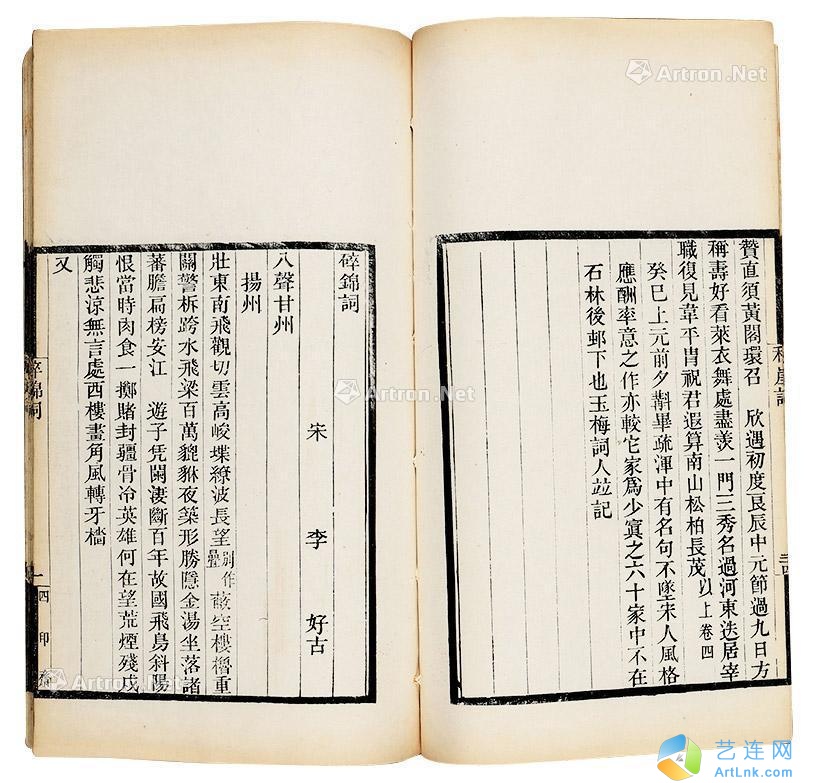 贊直須黃閣環召　欣遇初度艮辰中元節過九日方
稱壽好看萊衣舞處盡羨一門三秀名過河東迭居宰
職復見韋平胄祝君遐算南山松柏長茂以上卷四
癸巳上元前夕斠畢疏渾中有名句不墜宋人風格
應酬率意之作亦較它家為少寘之六十家中不在
石林後邨下也玉梅詞人竝記
碎錦詞
宋　李　好古
八聲甘州
揚州
壯東南飛觀切雲高峻堞繚波長望別作疊蔽空樓櫓重
關警柝跨水飛梁百萬貔貅夜築形勝隱金湯坐落諸
蕃膽扁榜安江　遊子凭闌淒斷百年故國飛鳥斜陽
恨當時肉食一擲賭封疆骨冷英雄何在望荒煙殘戍
觸悲涼無言處西樓畫角風轉牙檣
又
碎錦詞
一
四印齋
Artron.Net
Artron.Net
Artron.Net
Artron.Net
艺连网
ArtLnk.com